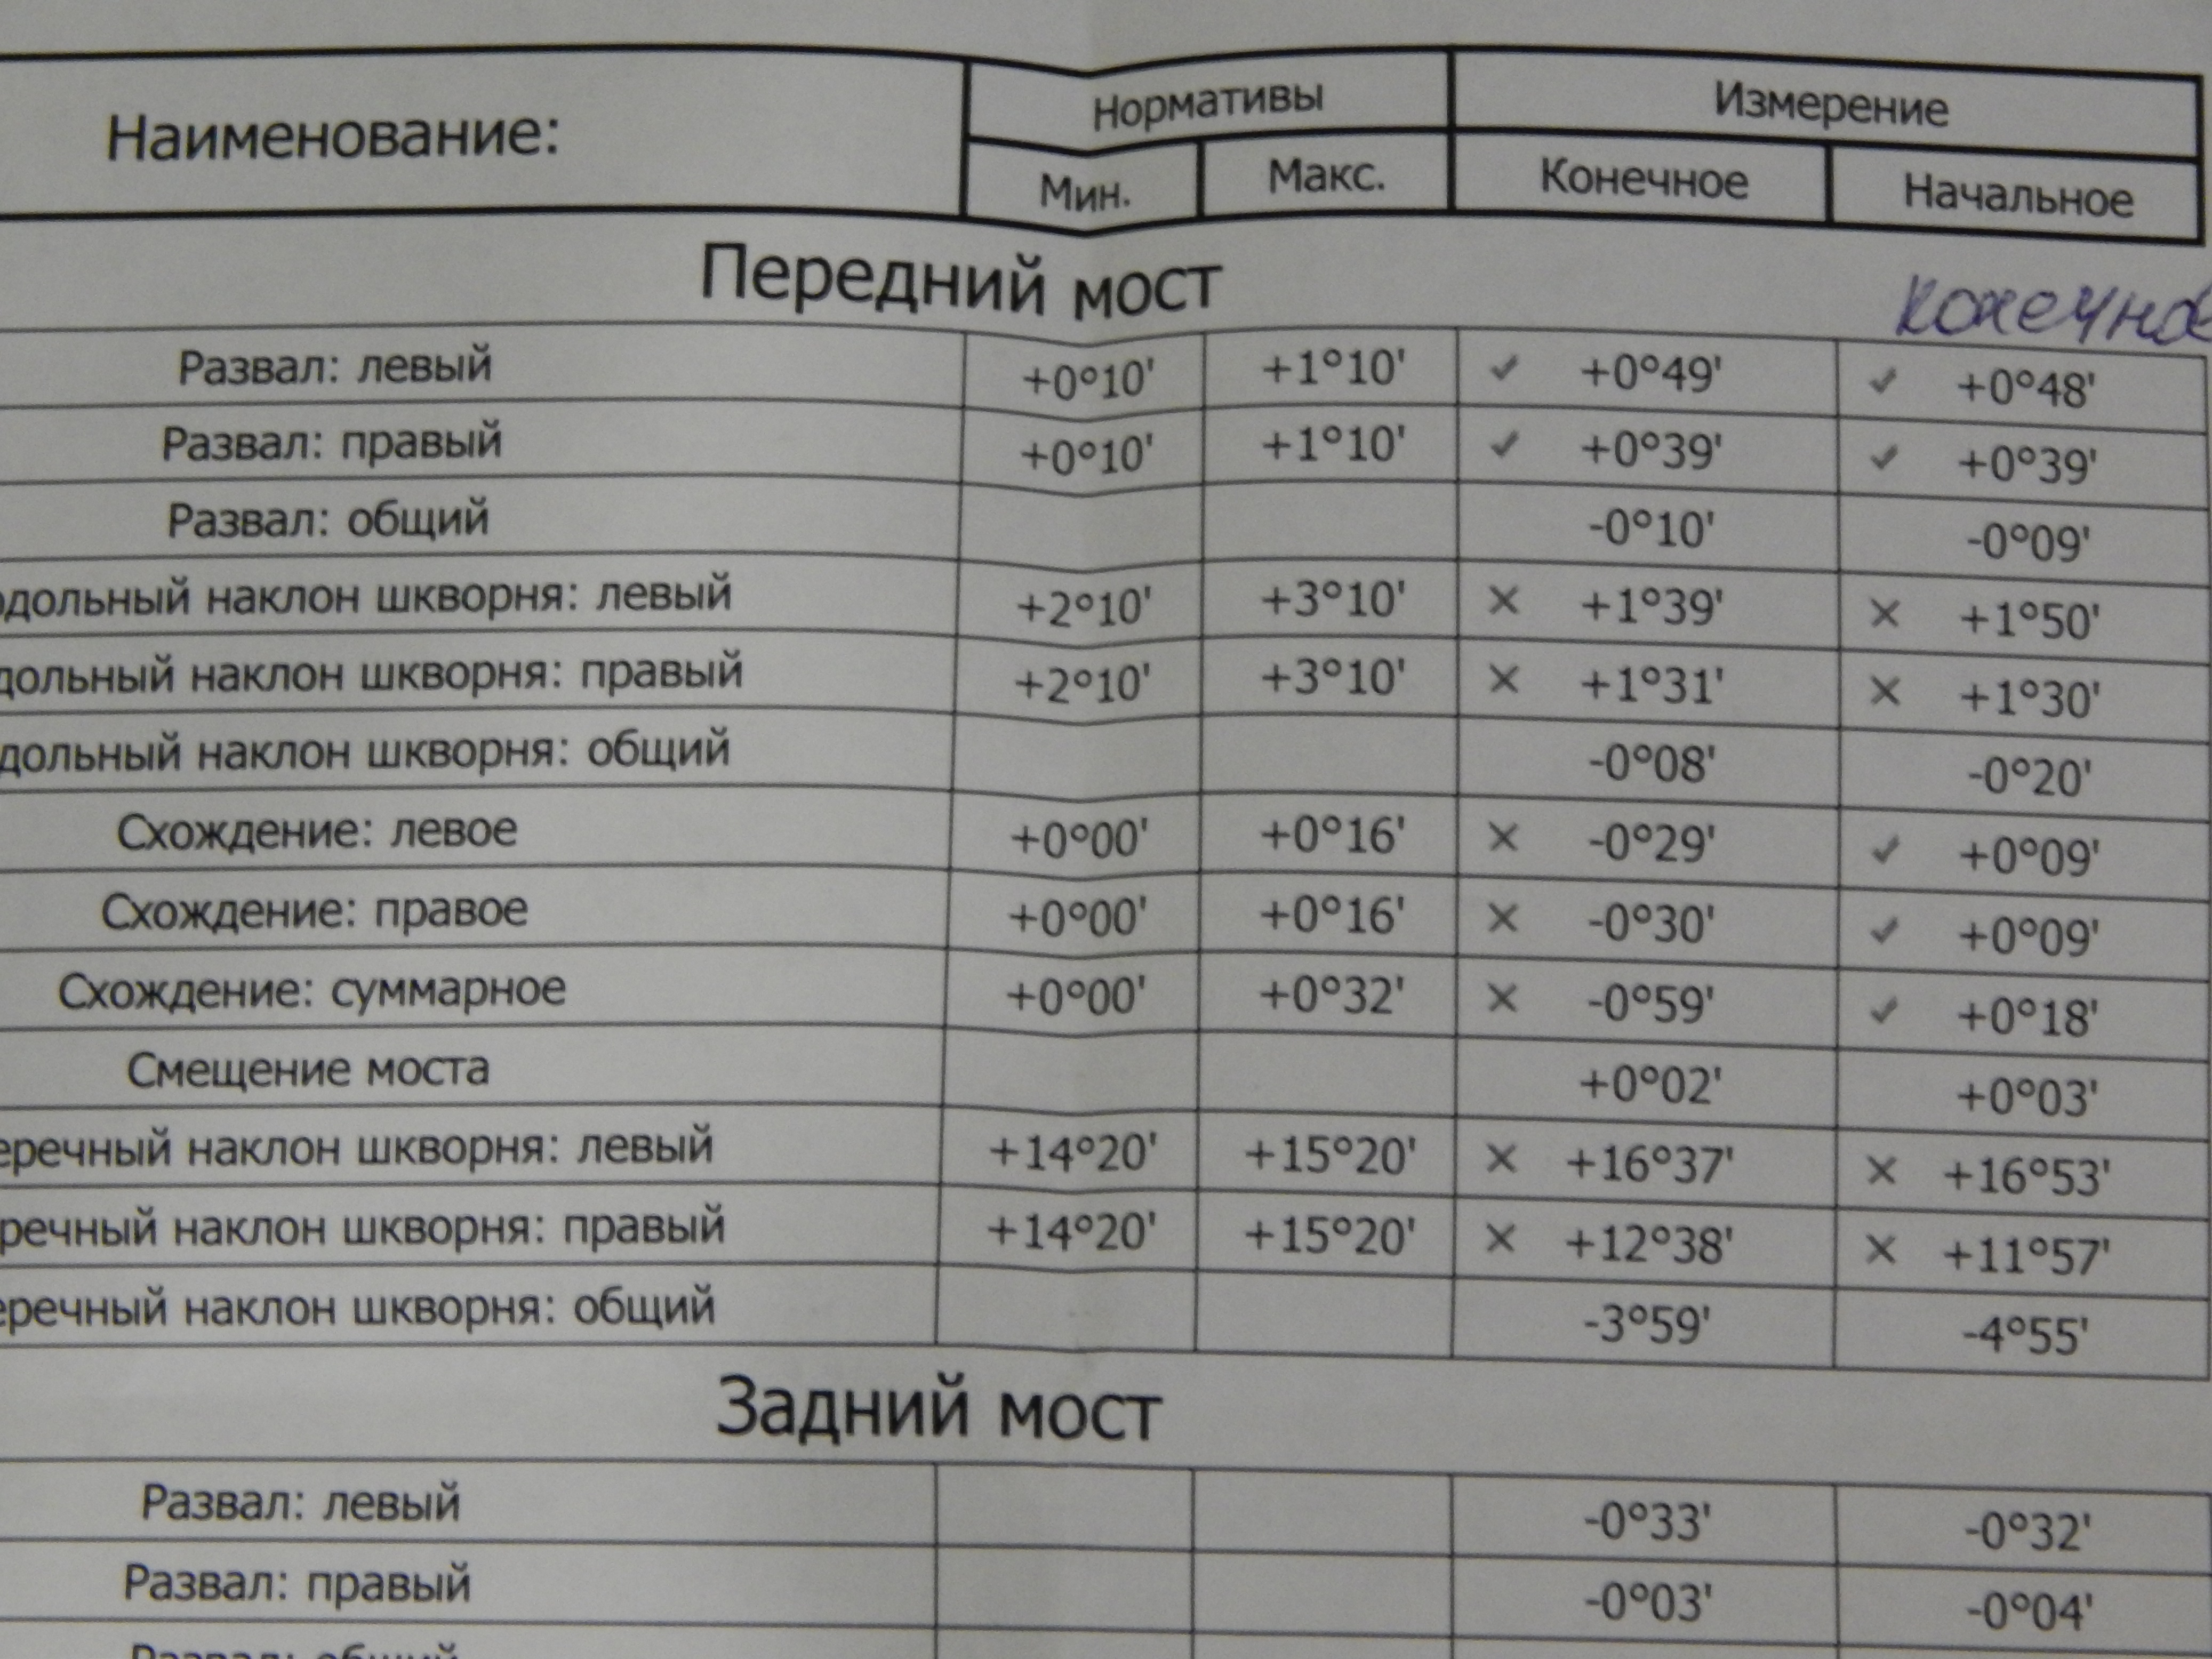 Наименование: Нормативы Измерение
Мин. Макс. Конечное Начальное
Передний мост
конечное
Развал: левый +0°10' +1°10' ✓ +0°49' ✓ +0°48'
Развал: правый +0°10' +1°10' ✓ +0°39' ✓ +0°39'
Развал: общий -0°10' -0°09'
одольный наклон шкворня: левый +2°10' +3°10' × +1°39' × +1°50'
дольный наклон шкворня: правый +2°10' +3°10' × +1°31' × +1°30'
дольный наклон шкворня: общий -0°08' -0°20'
Схождение: левое +0°00' +0°16' × -0°29' ✓ +0°09'
Схождение: правое +0°00' +0°16' × -0°30' ✓ +0°09'
Схождение: суммарное +0°00' +0°32' × -0°59' ✓ +0°18'
Смещение моста +0°02' +0°03'
еречный наклон шкворня: левый +14°20' +15°20' × +16°37' × +16°53'
речный наклон шкворня: правый +14°20' +15°20' × +12°38' × +11°57'
еречный наклон шкворня: общий -3°59' -4°55'
Задний мост
Развал: левый -0°33' -0°32'
Развал: правый -0°03' -0°04'
Развал: общий